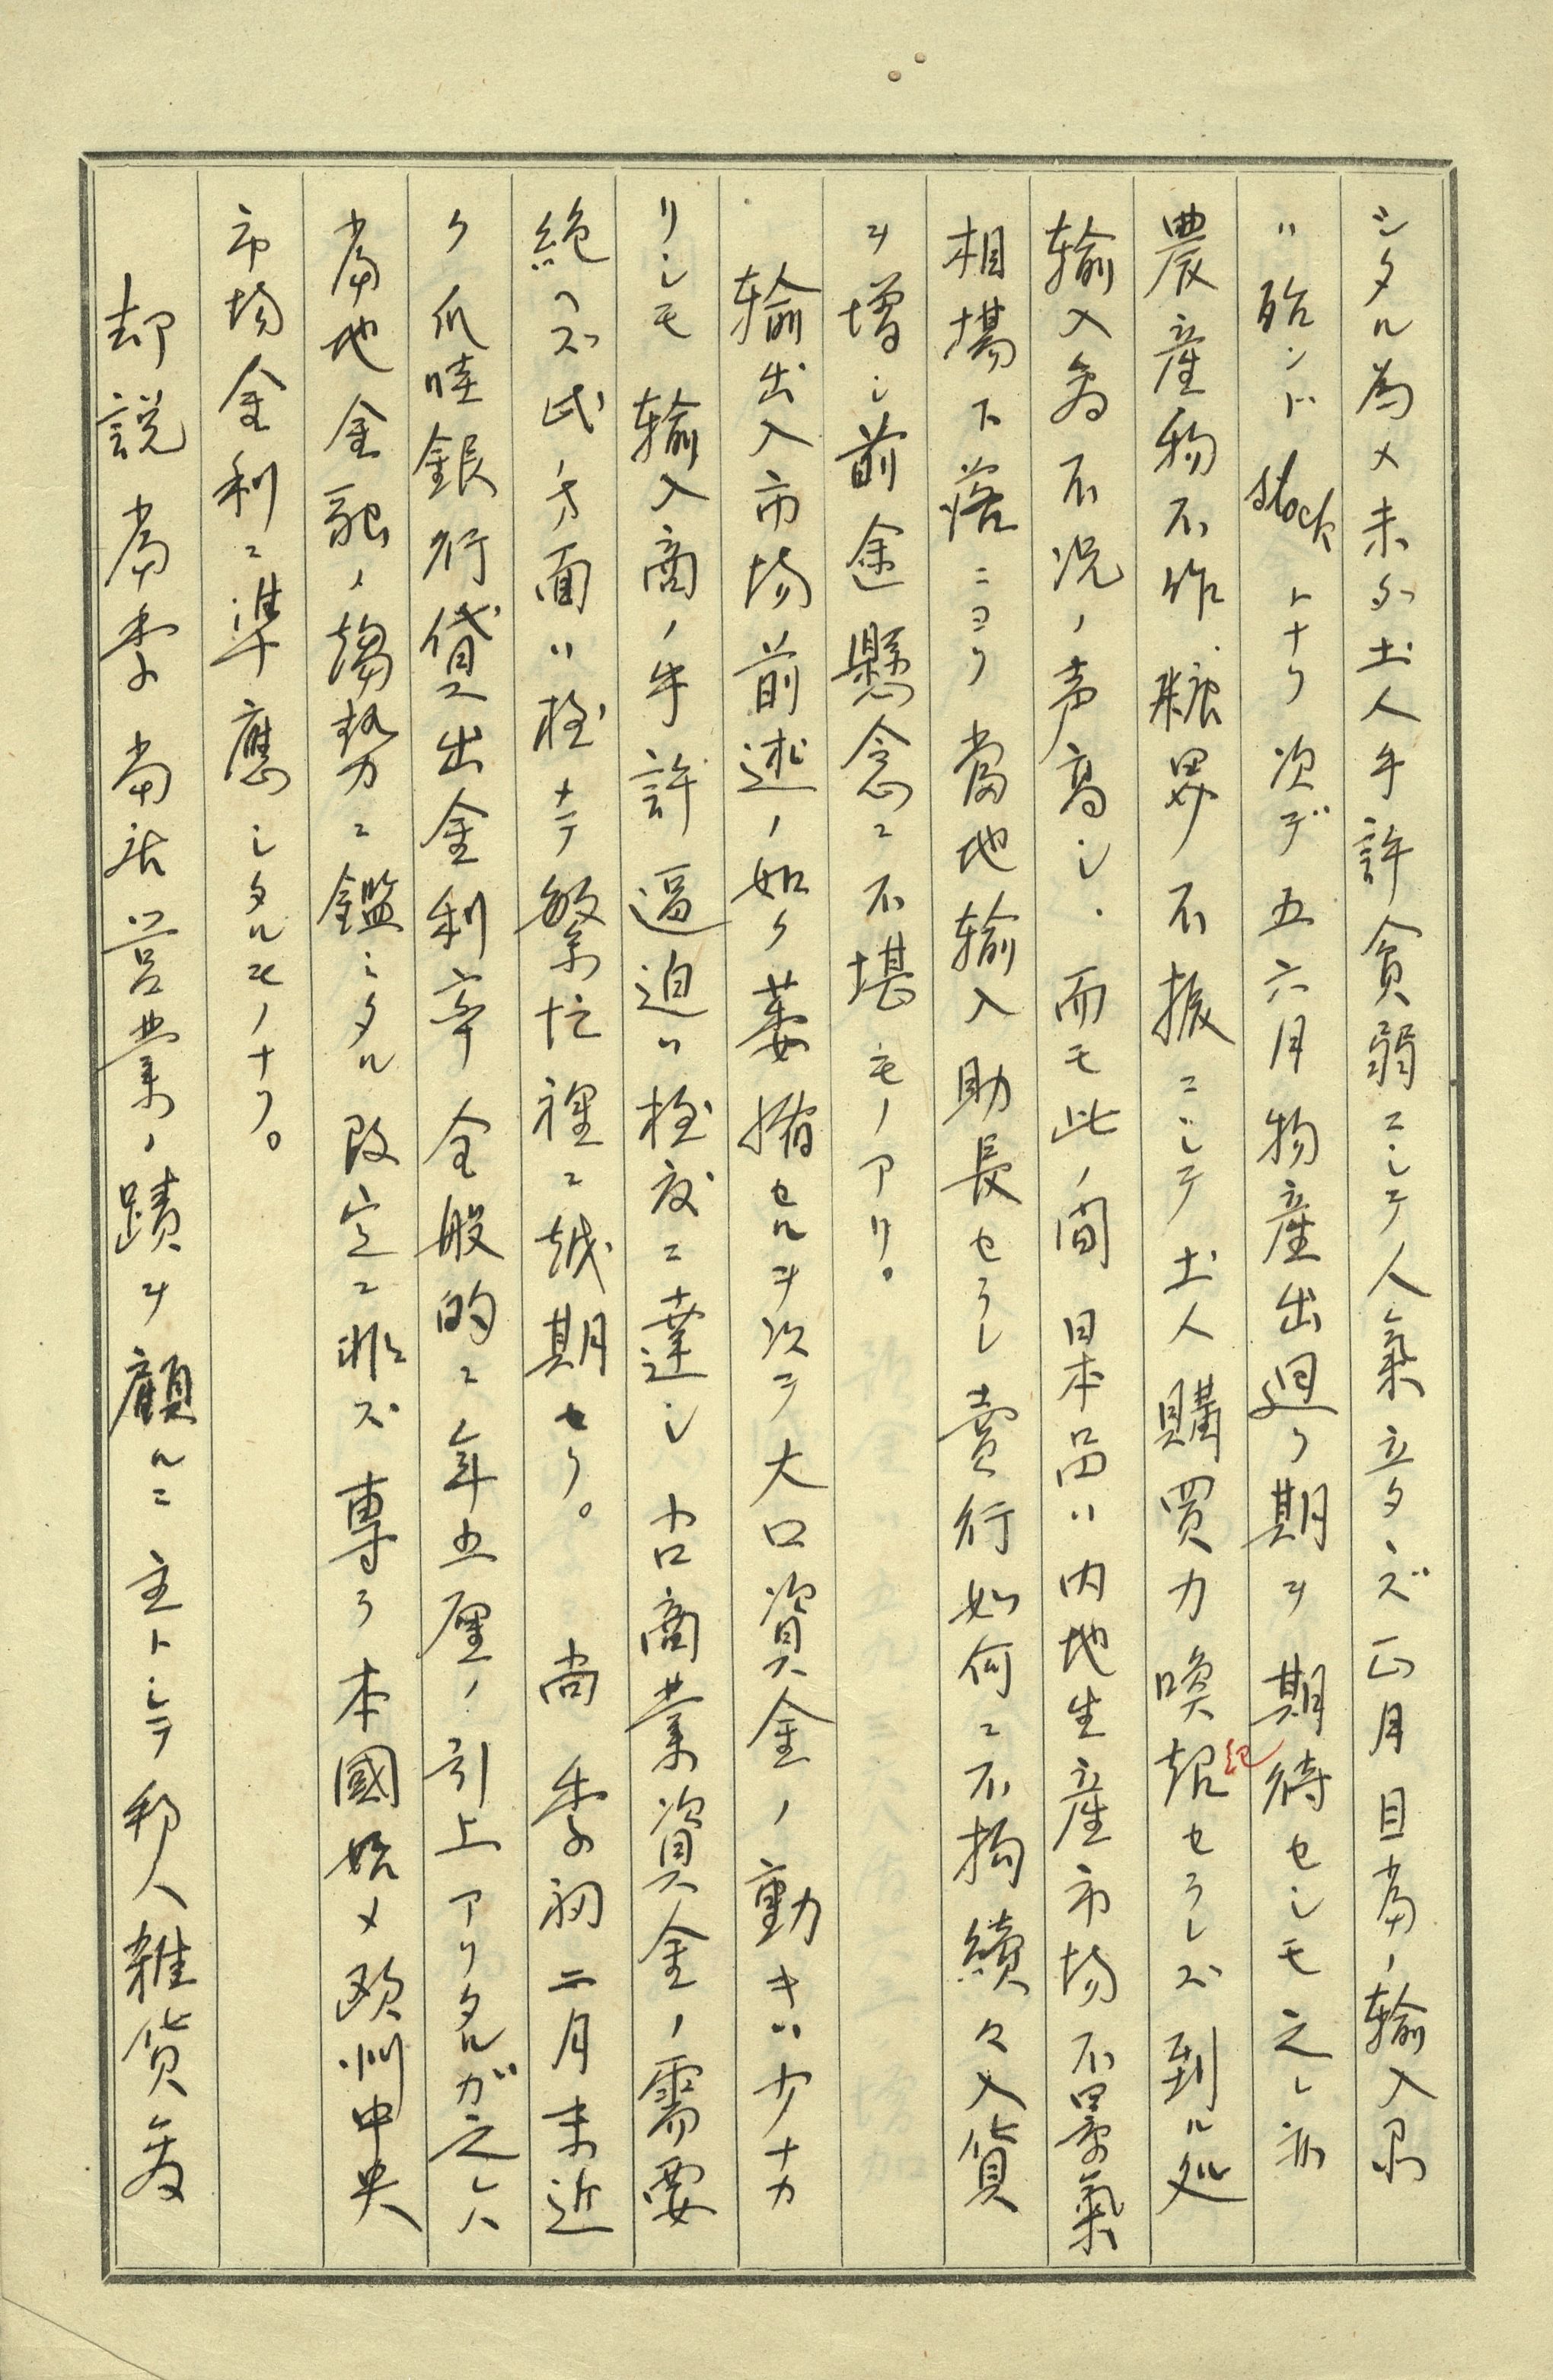 シタル為メ未タ土人手許貧弱ニシテ人氣立タズ正月目當ノ輸入品
ハ殆ンド stock トナリ次デ五六月物産出廻リ期ヲ期待セシモ之レ亦
農産物不作糖界不振ニシテ土人購買力喚起セラレズ到ル処
紀
輸入商不況ノ声高シ、而モ此ノ間日本品ハ内地生産市場不景氣
相場下落ニヨリ當地輸入助長セラレ賣行如何ニ不拘續々入貨
ヲ増シ前途懸念ニ不堪モノアリ。
輸出入市場前述ノ如ク萎縮セルヲ以テ大口資金ノ動キハ少ナカ
リシモ輸入商ノ手許逼迫ハ極度ニ達シ小口商業資金ノ需要
絶ヘズ此ノ方面ハ極メテ繁忙裡ニ越期セリ。尚季初二月末近
ク爪哇銀行貸出金利率全般的ニ年五厘ノ引上アリタルガ之レハ
當地金融ノ趨勢ニ鑑ミタル改定ニ非ズ専ラ本國始メ欧洲中央
市場金利ニ準應シタルモノナリ。
却説當季當店営業ノ蹟ヲ顧ルニ主トシテ邦人雑貨商